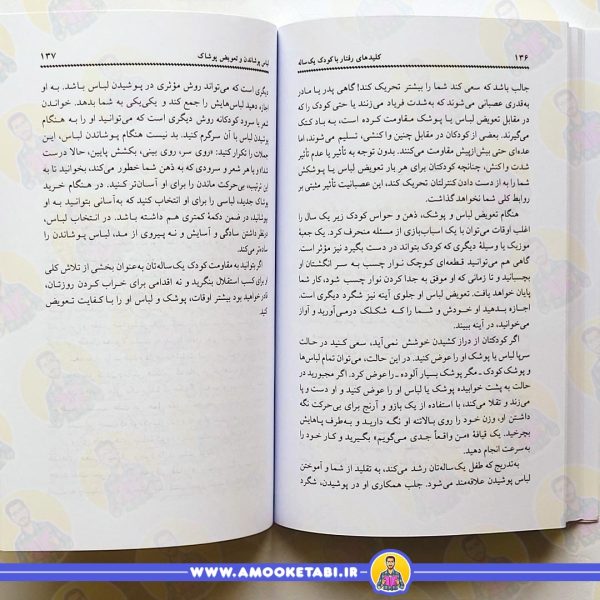 ۱۳۶
کلیدهای رفتار با کودک یک‌ساله
جالب باشد که سعی کند شما را بیشتر تحریک کند! گاهی پدر یا مادر
به‌قدری عصبانی می‌شوند که به‌شدت فریاد می‌زنند یا حتی کودک را که
در مقابل تعویض لباس یا پوشک مقاومت کرده است، به باد کتک
می‌گیرند. بعضی از کودکان در مقابل چنین واکنشی، تسلیم می‌شوند، اما
عده‌ای حتی بیش‌ازپیش مقاومت می‌کنند. بدون توجه به تأثیر یا عدم تأثیر
شدت واکنش، چنانچه کودکتان برای هر بار تعویض لباس یا پوشکش
شما را به از دست دادن کنترلتان تحریک کند، این عصبانیت تأثیر مثبتی بر
روابط کلی شما نخواهد گذاشت.
هنگام تعویض لباس و پوشک، ذهن و حواس کودک زیر یک سال را
اغلب اوقات می‌توان با یک اسباب‌بازی از مسئله منحرف کرد. یک جعبهٔ
موزیک یا وسیلهٔ دیگری که کودک بتواند در دست بگیرد نیز مؤثر است.
گاهی هم می‌توانید قطعه‌ای کوچک نوار چسب به سر انگشتان او
بچسبانید و تا زمانی که او موفق به جدا کردن نوار چسب شود، کار شما
پایان خواهد یافت. تعویض لباس او جلوی آینه نیز شگرد دیگری است.
اجازه بدهید او خودش و شما را که شکلک درمی‌آورید و آواز
می‌خوانید، در آینه ببیند.
اگر کودکتان از دراز کشیدن خوشش نمی‌آید، سعی کنید در حالت
سرپا لباس یا پوشک او را عوض کنید. در این حالت، می‌توان تمام لباس‌ها
و پوشک کودک ـ مگر پوشک بسیار آلوده ـ را عوض کرد. اگر مجبورید در
حالت به پشت خوابیده پوشک یا لباس او را عوض کنید و او دست و پا
می‌زند و تقلا می‌کند، با استفاده از یک بازو و آرنج برای بی‌حرکت نگه
داشتن او، وزن خود را روی بالاتنه او نگه دارید و به‌طرف پاهایش
بچرخید. یک قیافهٔ «من واقعاً جدی می‌گویم» بگیرید و کار خود را
به‌سرعت انجام دهید.
به‌تدریج که طفل یک‌ساله‌تان رشد می‌کند، به تقلید از شما و آموختن
لباس پوشیدن علاقه‌مند می‌شود. جلب همکاری او در پوشیدن، شگرد
لباس پوشاندن و تعویض پوشاک
۱۳۷
دیگری است که می‌تواند روش مؤثری در پوشیدن لباس باشد. به او
اجازه دهید لباس‌هایش را جمع کند و یکی‌یکی به شما بدهد. خواندن
شعر یا سرود کودکانه روش دیگری است که می‌توانید او را به هنگام
پوشیدن لباس با آن سرگرم کنید. بد نیست هنگام پوشاندن لباس، این
جملات را تکرار کنید: «روی سر، روی بینی، بکشش پایین، حالا درست
شد» و یا هر شعر و سرودی که به ذهن شما خطور می‌کند، بخوانید تا به
این ترتیب، بی‌حرکت ماندن را برای او آسان‌تر کنید. در هنگام خرید
پوشاک جدید، لباسی را برای او انتخاب کنید که به‌آسانی بتوانید به او
بپوشانید، در ضمن دکمهٔ کمتری هم داشته باشد. در انتخاب لباس،
درنظر داشتن سادگی و آسایش و نه پیروی از مد، لباس پوشاندن را
ساده‌تر می‌کند.
اگر بتوانید به مقاومت کودک یک‌ساله‌تان به‌عنوان بخشی از تلاش کلی
او برای کسب استقلال بنگرید و نه اقدامی برای خراب کردن روزتان،
قادر خواهید بود بیشتر اوقات، پوشک و لباس او را با کفایت تعویض
کنید.
WWW.AMOOKETABI.IR